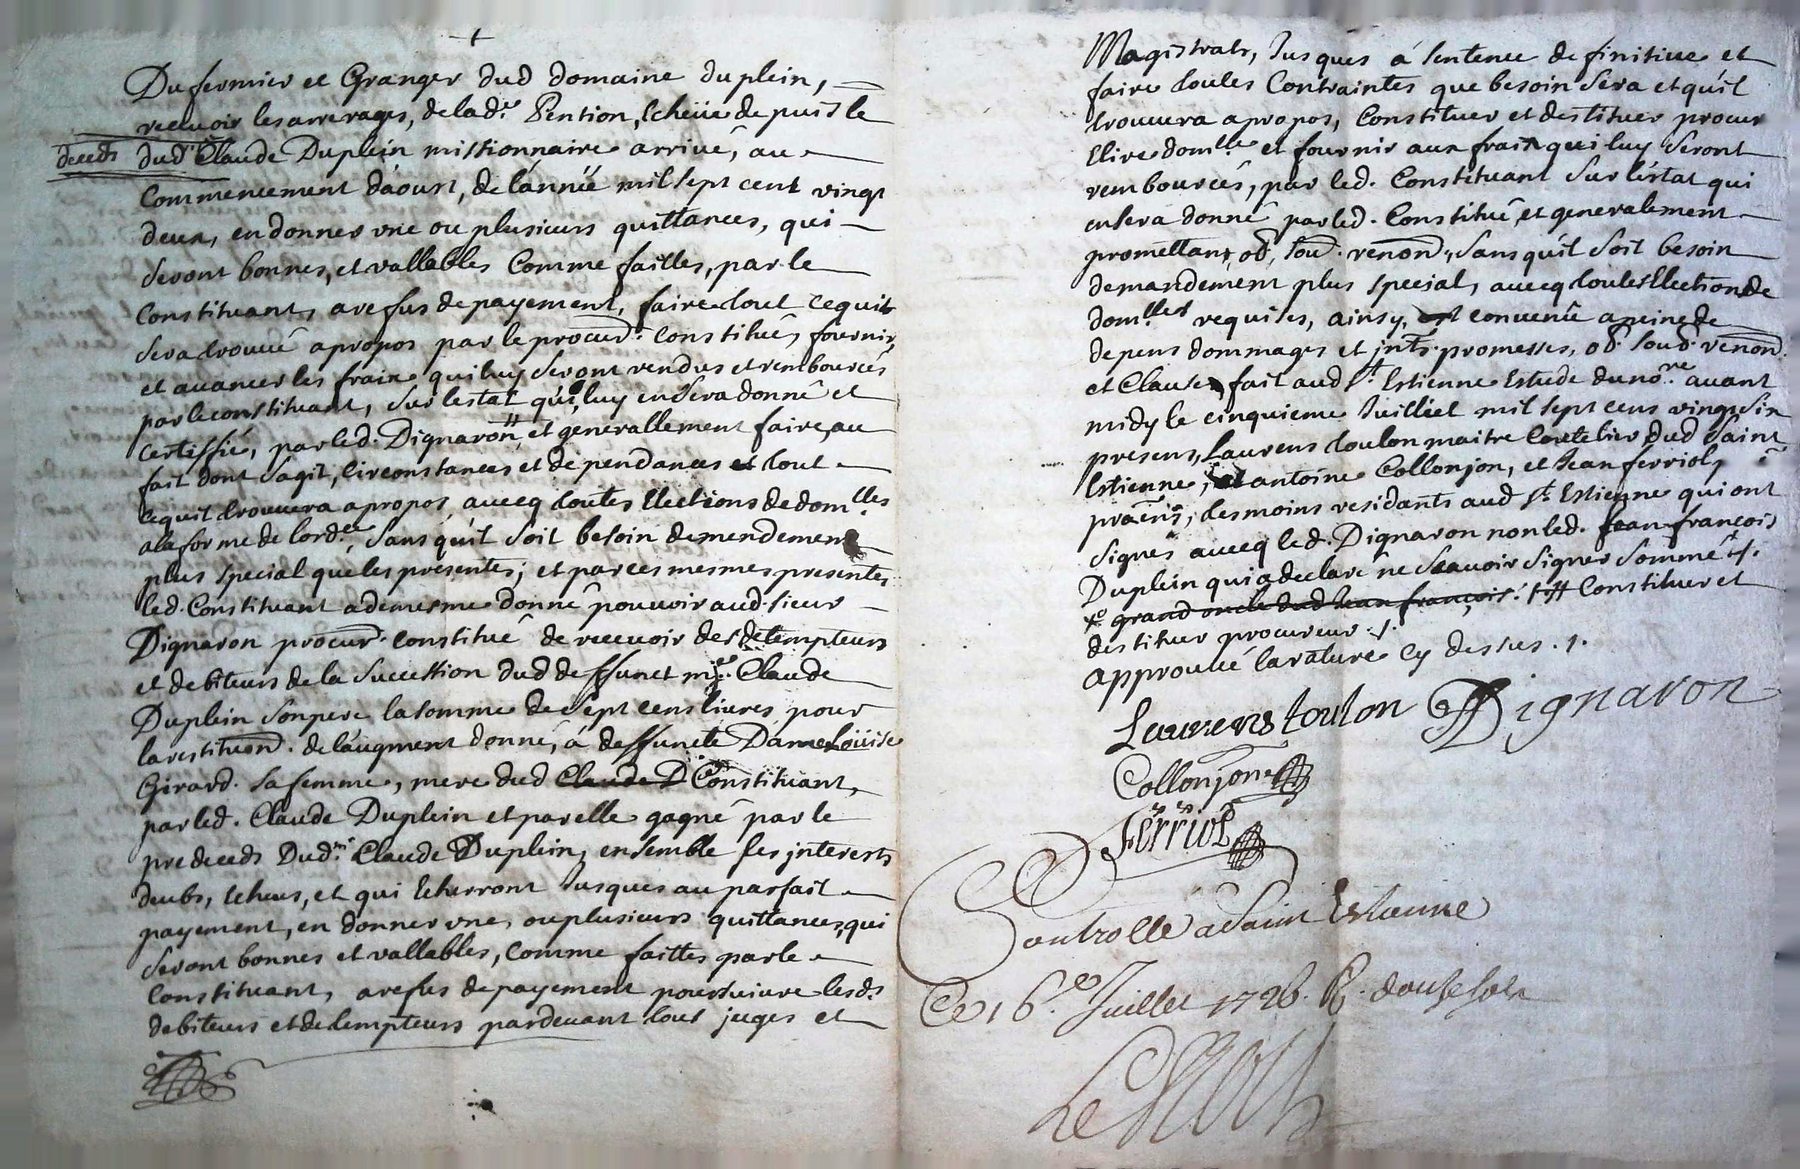 Du fermier et Granger dud domaine duplein,
recevoir les arrerages, de lad.e Pention, Echeüe depuis le
deceds dud.t Claude Duplein missionnaire arrivé, au
Commencement d'aoust, de l'année mil sept cent vingt
deux, en donner une ou plusieurs quittances, qui
Seront bonnes, et vallables Comme faittes, par le
Constituant, a refus de payement, faire tout ce quil
Sera trouvé apropos par le procur.r Constitué, fournir,
et avancer les fraix qui luy Seront rendus et rembourcés
par le constituant, Sur lestat qui luy en Sera donné et
Certiffié, par led. Dignaron, # et generallement faire, au
fait dont Sagit, Circonstances et dependances et tout
ce quil trouvera apropos, avecq toutes Elections de dom.lles
a la forme de lord.ce, Sans quil Soit besoin demendement
plus special que les presentes; et par ces mesmes presentes
led. Constituant a demesme donné pouvoir aud. sieur
Dignaron procur.r Constitué de recevoir des detempteurs
et debiteurs de la Succession dud deffunct m.e Claude
Duplein Son pere la somme de Sept cens livres pour
la restituõn. de l'augment donné, á deffuncte Dame Loüise
Girard. Sa femme, mere dud Claude D Constituant,
par led. Claude Duplein et par elle gagné par le
predeceds Dud. Claude Duplein, ensemble les jnterests
deubs, Echeus, et qui Echerront Jusques au parfait
payement, en donner une, ou plusieurs quittances, qui
Seront bonnes et vallables, Comme faittes par le
Constituant, a refus de payement poursuivre lesd.
debiteurs et detempteurs pardevant tous juges et
Magistrats, Jusques á Sentence definitive et
faire toutes Contraintes que besoin Sera et quil
trouvera apropos, Constituer et destituer procur
Elire dom.lle et fournir aux fraix qui luy Seront
rembourcés, par led. Constituant Sur l'estat qui
en Sera donné par led. Constitué, et generalement
promettant, ob, Soub. renon., Sans quil Soit besoin
demandement plus special, avecq toutes Ellections de
dom.lles requises, ainsy, est convenu a peine de
depens dommages et jnts. promesses, ob. Soub. renon.
et Clauses, fait aud St Estienne Estude du no.re avant
midy le cinquieme Juilliet mil sept cens vingt Six
presens, Laurens toulon maitre Coutelier dud Saint
Estienne, et antoine Collonjon, et Jean ferriol,
praêns, tesmoins residants aud St. Estienne qui ont
Signés avecq led. Dignaron non led. Jean françois
Duplein qui a declaré ne Scavoir Signer Sommé ./.
x grand oncle dud Jean françois: ./. # Constituer et
destituer procureur ./.
approuvé la rature cy dessus . /.
Laurens toulon Dignaron
Collonjon
Ferriol
Controllé a Saint Estienne
Ce 16.e Juillet 1726. R. douse sols